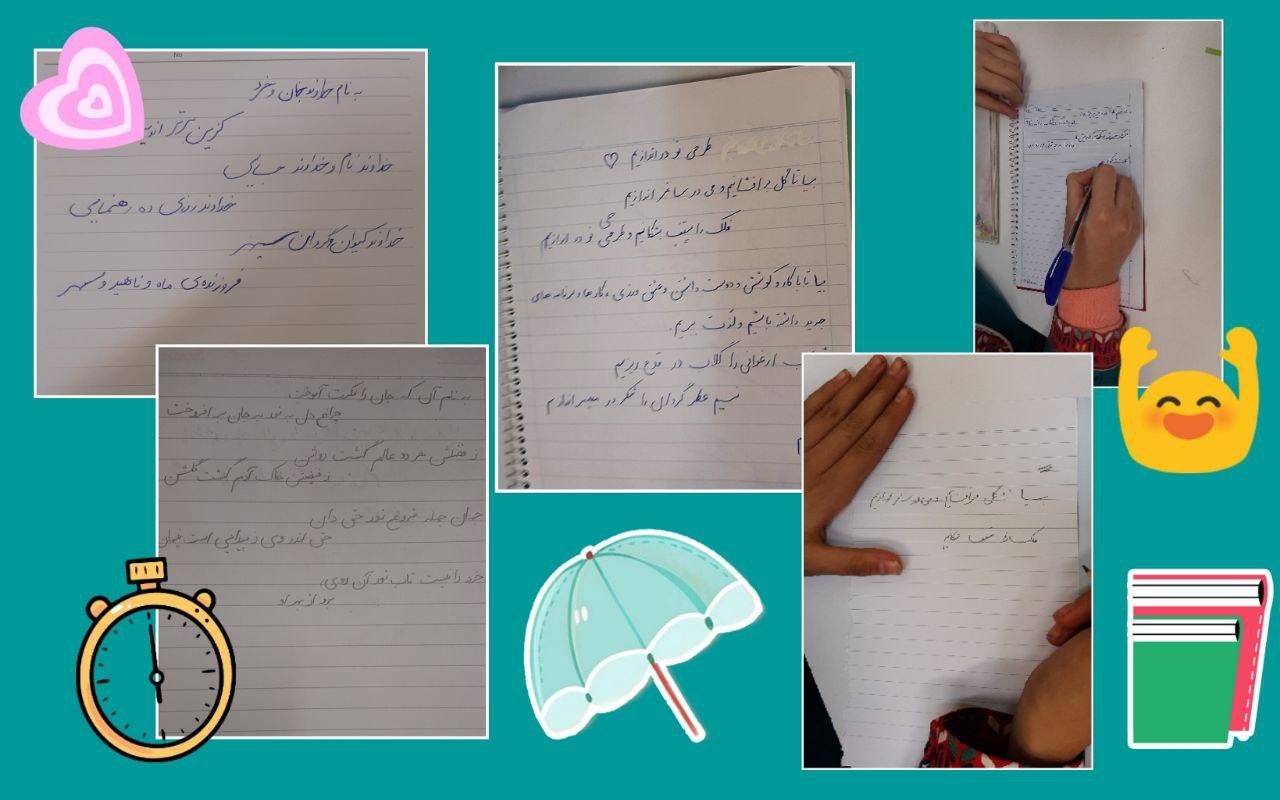 No
به نام خداوند جان و خرد
کزین برتر اندی
خداوند نام و خداوند جای
خداوند روزی ده رهنمایی
خداوند کیوان و گردان سپهر
فروزنده‌ی ماه و ناهید و مهر
به نام آن که جان را فکرت آموخت
چراغ دل به نور جان بر افروخت
ز فضلش هر دو عالم گشت روشن
ز فیضش خاک آدم گشت گلشن
جهان جمله فروغ نور حق دان
حق اندر وی ز پیدایی است پنهان
خرد را نیست تاب نور آن روی
برو از بهر او
طرحی نو در اندازیم ♡
بیا تا گل بر افشانیم و می در ساغر اندازیم
فلک را سقف بشکافیم و طرحی نو در اندازیم
بیا تا با کار و کوشش و دوست داشتن و عشق ورزی، کارها و برنامه های
جدید داشته باشیم و لذت ببریم.
ارغوانی را گلاب در قدح ریزیم
نسیم عطر گردان را شکر در مجمر اندازیم
بیا تا گل برافشانیم و می در ساغر اندازیم
فلک را سقف بشکافیم